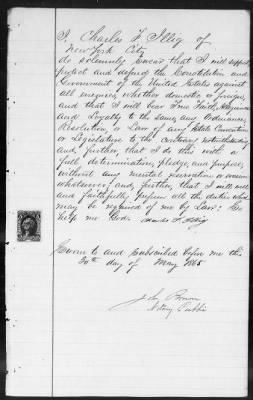 I, Charles F. Illig of
New York City
do solemnly swear that I will support
protect and defend the Constitution and
Government of the United States against
all enemies, whether domestic or foreign,
and that I will bear True Faith, Allegiance
and Loyalty to the same, any Ordinance,
Resolution, or Law of any State Convention
or Legislature to the contrary notwithstanding
and, further, that I do this with a
full determination, pledge, and purpose,
without any mental reservation or evasion
whatsoever; and, further, that I will well
and faithfully perform all the duties which
may be required of me by Law: So
help me God. Charles F. Illig
Sworn to and Subscribed before me this
30th day of May 1865
John
Notary Public